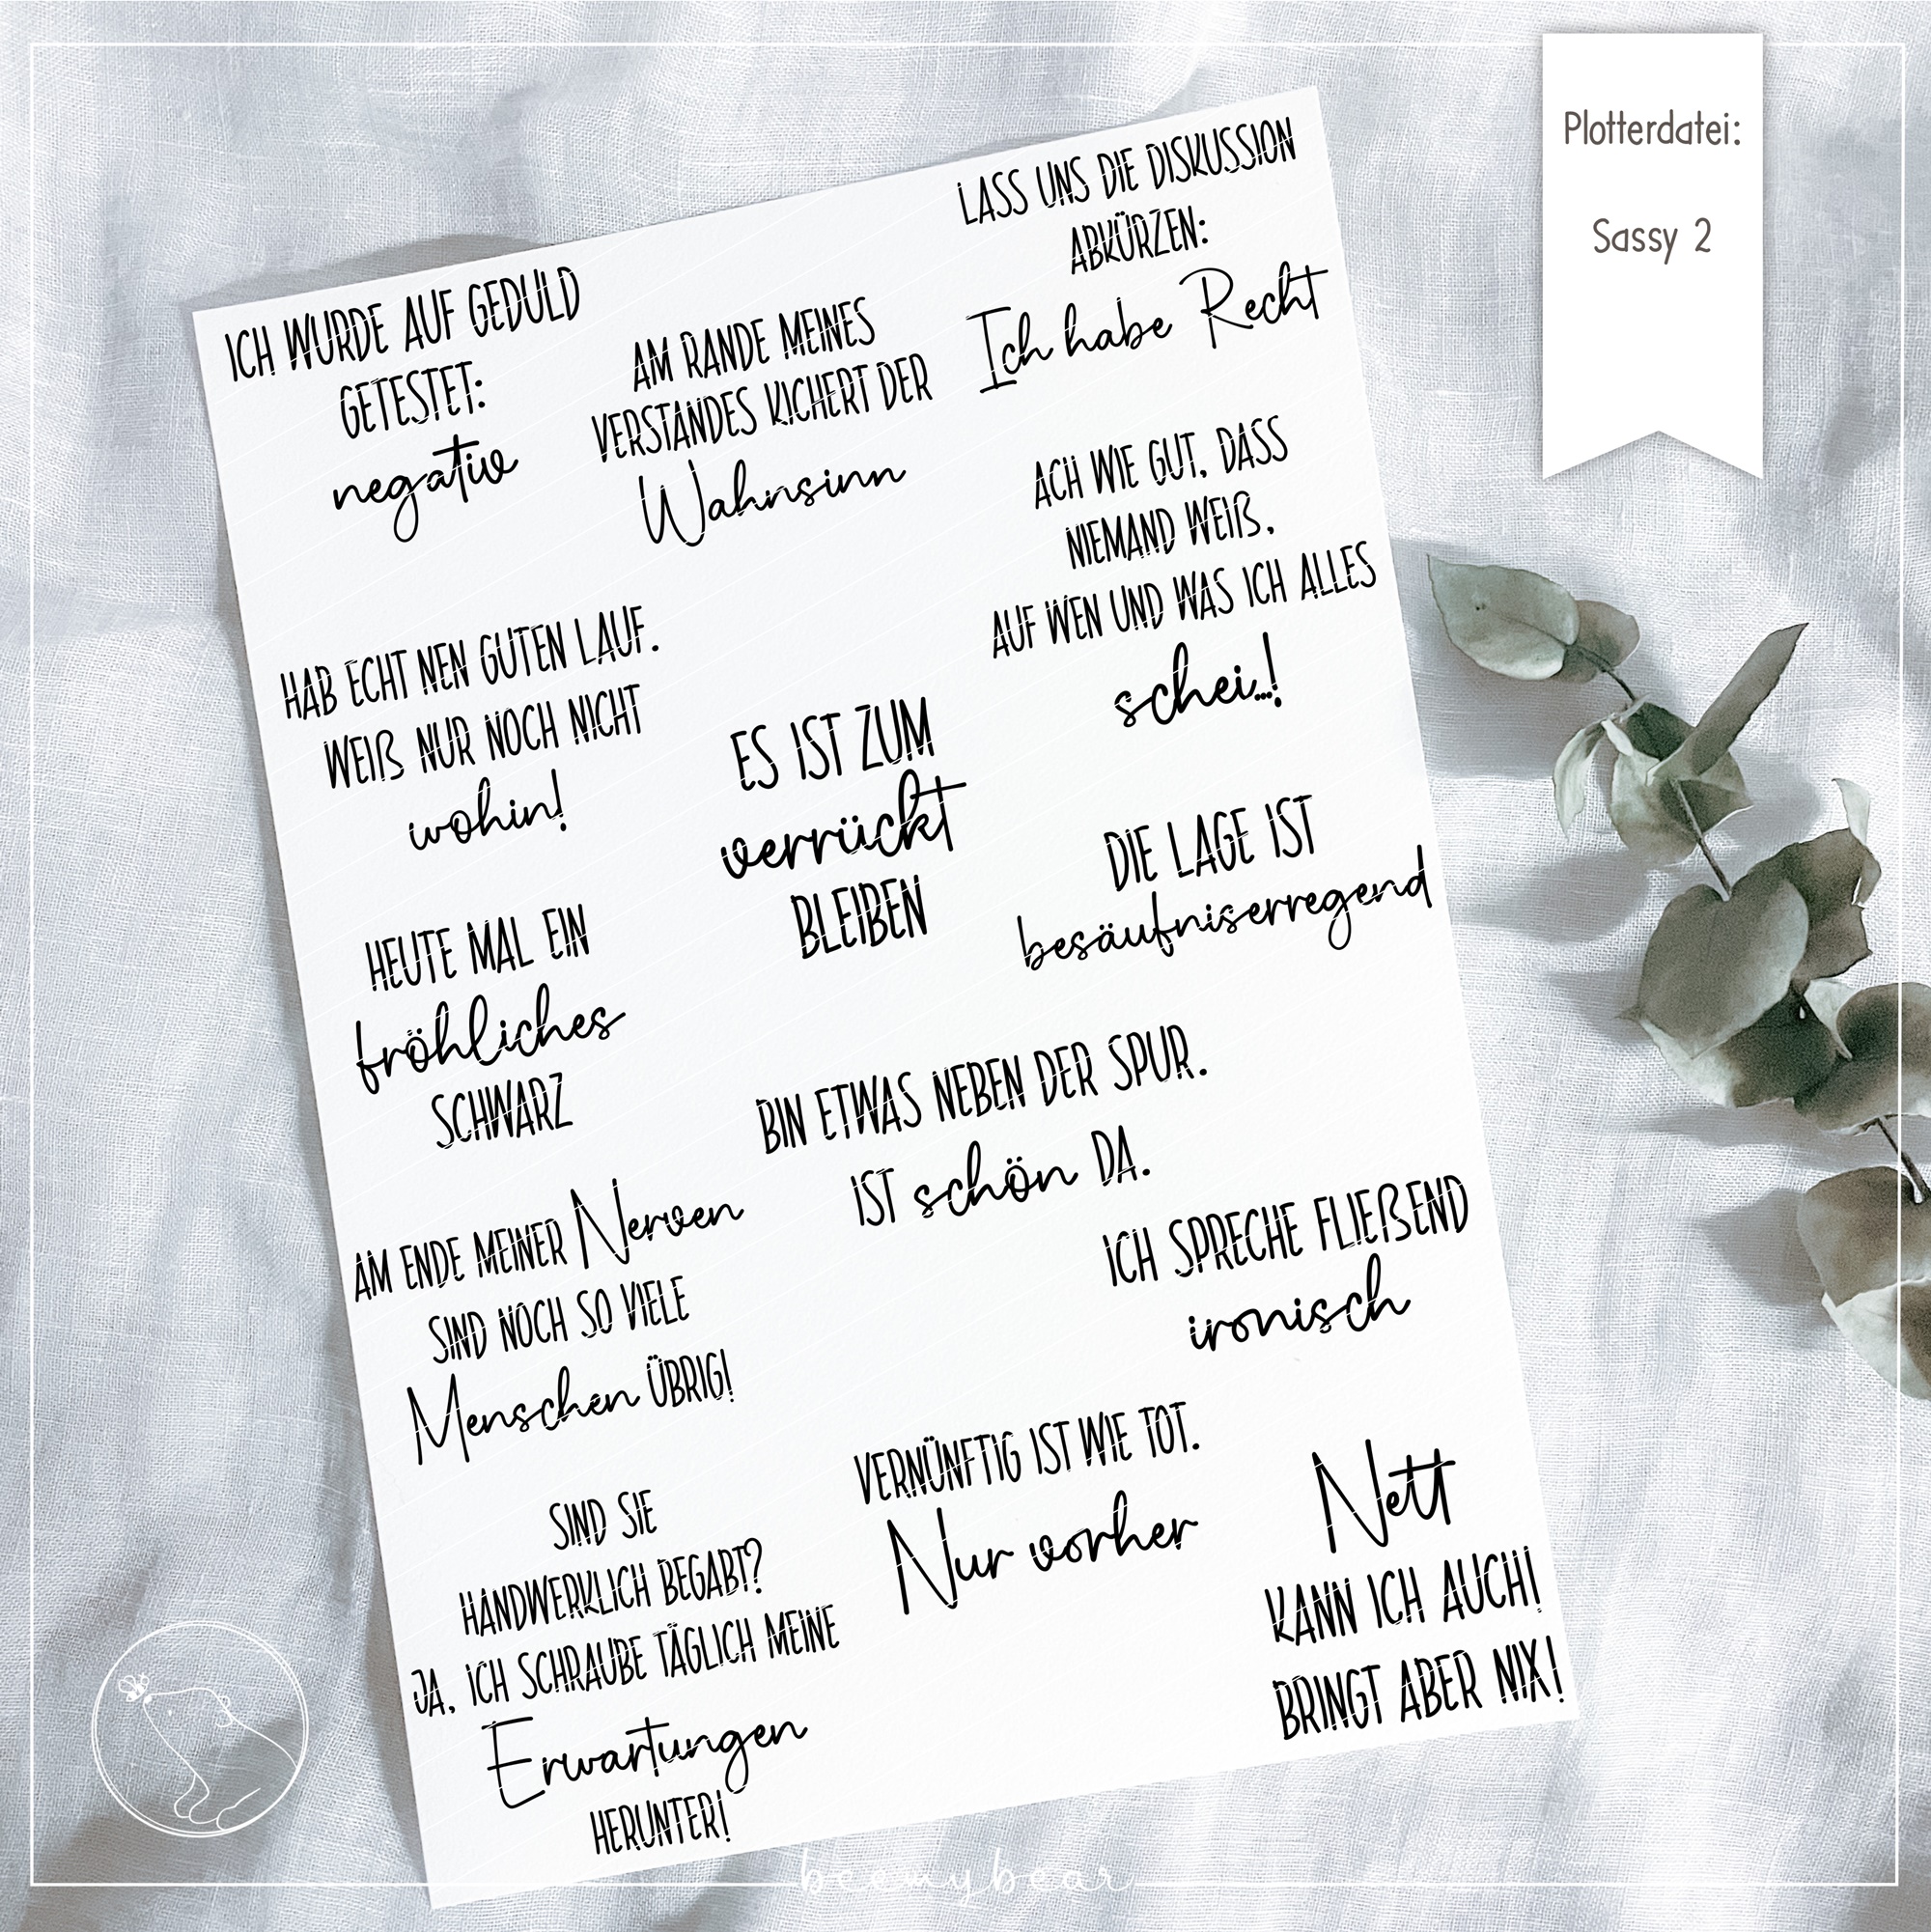 Plotterdatei:
Sassy 2
ICH WURDE AUF GEDULD
GETESTET:
negativ
AM RANDE MEINES
VERSTANDES KICHERT DER
Wahnsinn
LASS UNS DIE DISKUSSION
ABKÜRZEN:
Ich habe Recht
ACH WIE GUT, DASS
NIEMAND WEIß,
AUF WEN UND WAS ICH ALLES
schei...!
HAB ECHT NEN GUTEN LAUF.
WEIß NUR NOCH NICHT
wohin!
ES IST ZUM
verrückt
BLEIBEN
DIE LAGE IST
besäufniserregend
HEUTE MAL EIN
fröhliches
SCHWARZ
BIN ETWAS NEBEN DER SPUR.
IST schön DA.
AM ENDE MEINER Nerven
SIND NOCH SO VIELE
Menschen ÜBRIG!
ICH SPRECHE FLIEßEND
ironisch
SIND SIE
HANDWERKLICH BEGABT?
JA, ICH SCHRAUBE TÄGLICH MEINE
Erwartungen
HERUNTER!
VERNÜNFTIG IST WIE TOT.
Nur vorher
Nett
KANN ICH AUCH!
BRINGT ABER NIX!
beemybear